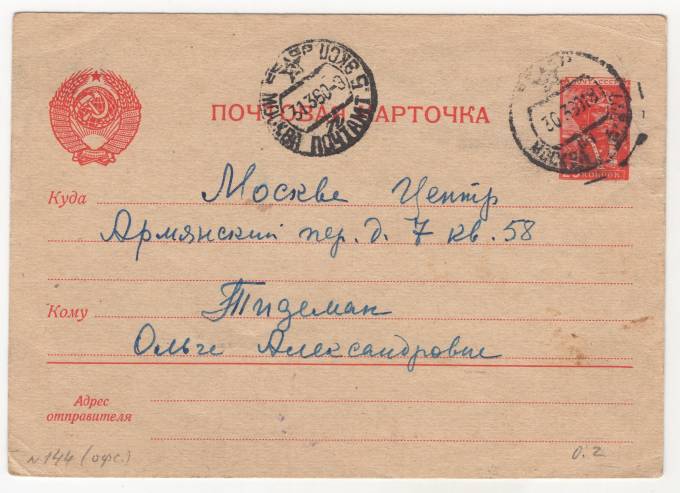 ПОЧТОВАЯ КАРТОЧКА
МОСКВА ПОЧТАМТ
МОСКВА
КОПЕЕК
Куда Москве Центр
Армянский пер. д. 7 кв. 58
Кому Тидеман
Ольге Александровне
Адрес
отправителя
№144 (офс.) 0.2